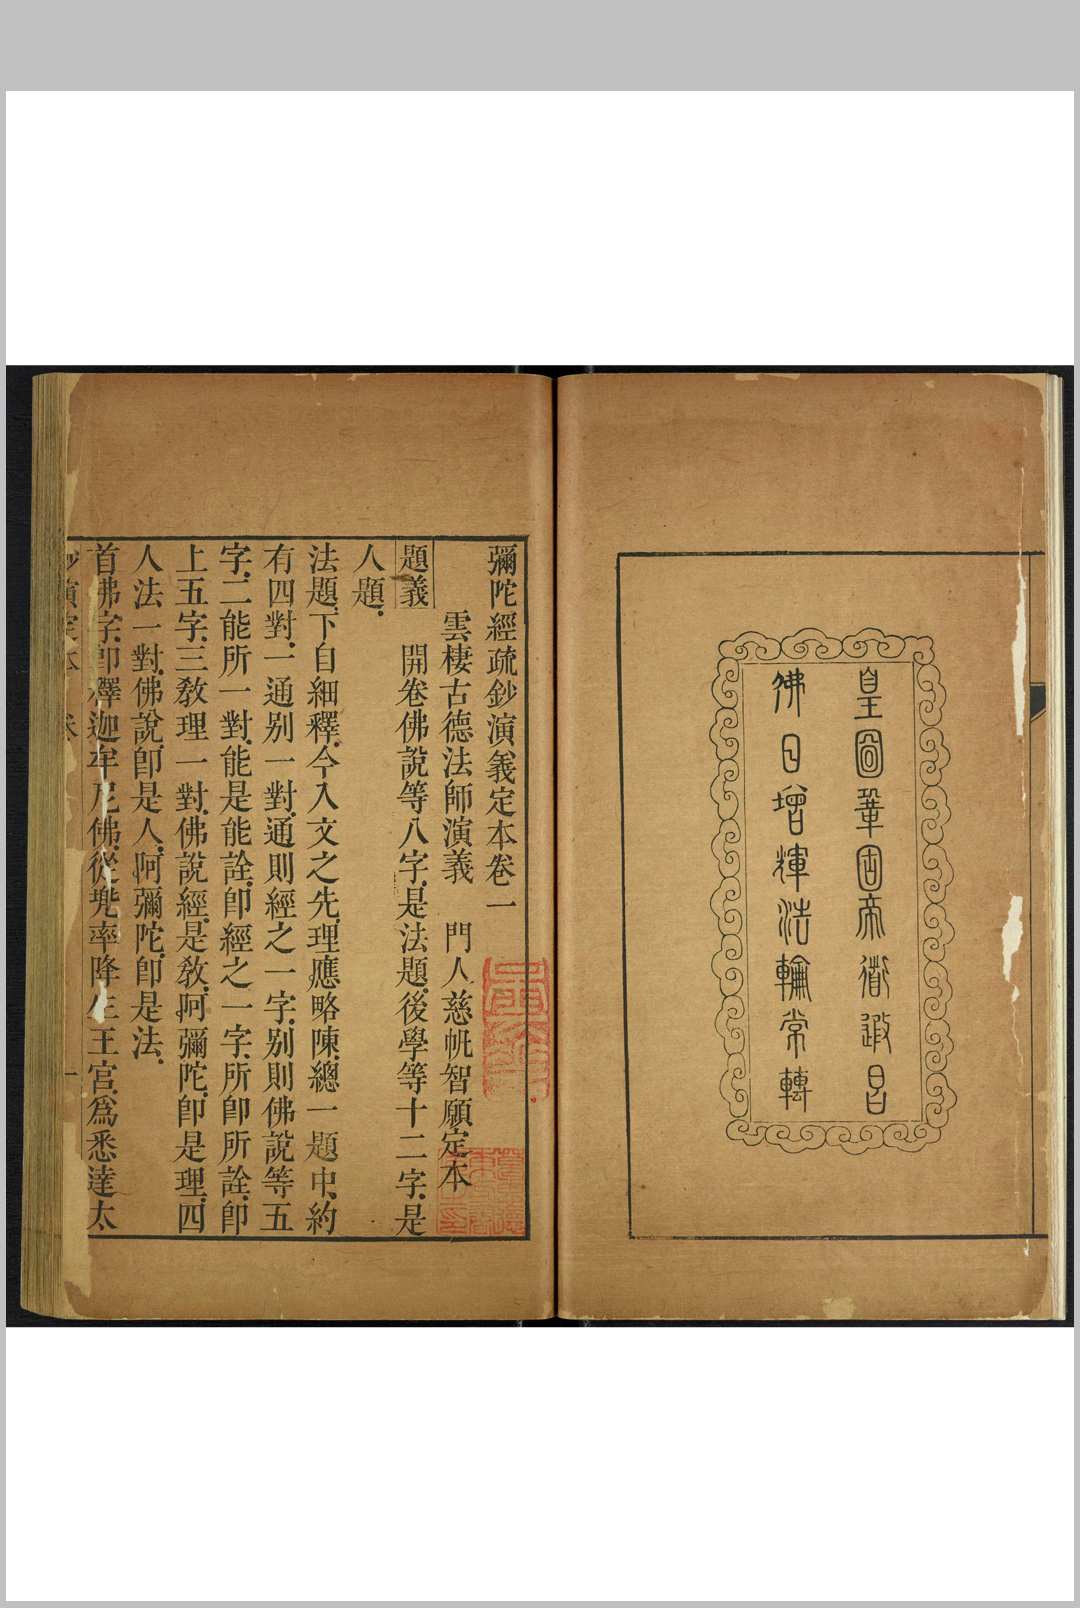 皇圖鞏固帝道遐昌
佛日增輝法輪常轉
彌陀經疏鈔演義定本卷一
雲棲古德法師演義　門人慈帆智願定本
題義　開卷佛說等八字是法題.後學等十二字.是
人題.
法題.下自細釋.今入文之先.理應略陳.總一題中.約
有四對.一通別一對.通則經之一字.別則佛說等五
字.二能所一對.能是能詮.卽經之一字.所卽所詮.卽
上五字.三教理一對.佛說經.是教.阿彌陀.卽是理.四
人法一對.佛說.卽是人.阿彌陀.卽是法.
首佛字.卽釋迦牟尼佛.從兜率降生王宮.爲悉達太
鈔演定本　卷　一